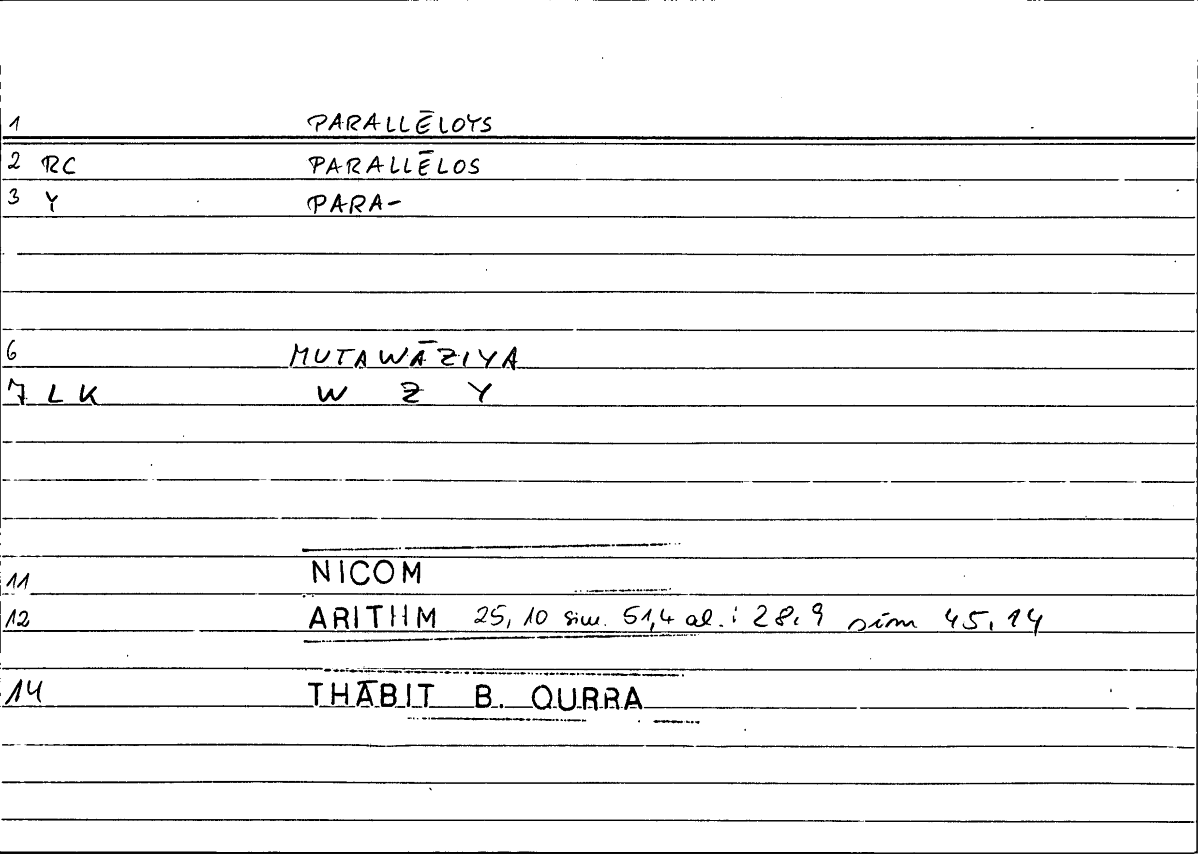 1 PARALLĒLOYS
2 RC PARALLĒLOS
3 Y PARA-
6 MUTAWĀZIYA
7 LK W Z Y
11 NICOM
12 ARITHM 25,10 sim. 51,4 al. : 28.9 sim 45.14
14 THĀBIT B. QURRA